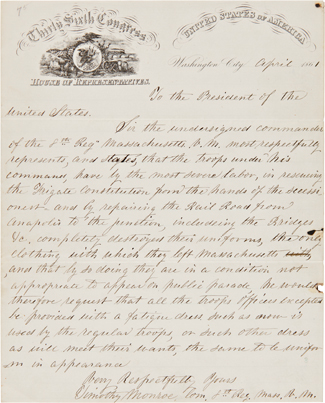 Thirty Sixth Congress
HOUSE OF REPRESENTATIVES.
UNITED STATES OF AMERICA
Washington City April 1861
To the President of the
United States.
Sir the undersigned commander
of the 8th Reg Massachusetts V. M. most respectfully
represents, and states, that the troops under his
command, have by the most severe labor, in rescuing
the Frigate Constitution from the hands of the secessi
onest and by repairing the Rail Road from
Anapolis to the junction, including the Bridges
&c, completly destroyed their uniforms, the only
clothing with which they left Massachusetts
and that by so doing they are in a condition not
appropriate to appear on public parade, he would
therefore request that all the troops officers excepted
be provided with a fatigue dress such as now is
used by the regular troops, or such other dress
as will meet their wants, the same to be unifor
m in appearance
Very Respectfull Yours
Timothy Monroe, Com, 8th Reg, Mass, V. M.